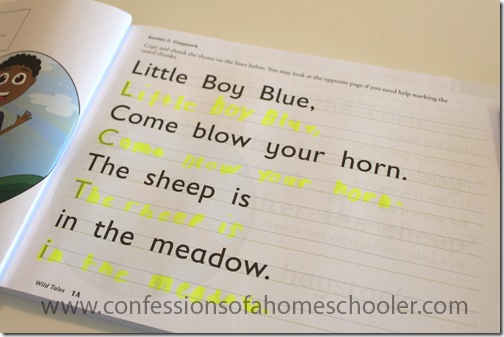 Section 2: Copywork
Copy and chunk the rhyme on the lines below. You may look at the opposite page if you need help marking the
vowel chunks.
Little Boy Blue,
Little Boy Blue,
Come blow your horn.
Come blow your horn.
The sheep is
The sheep is
in the meadow.
in the meadow
Wild Tales 1A
www.confessionsofahomeschooler.com